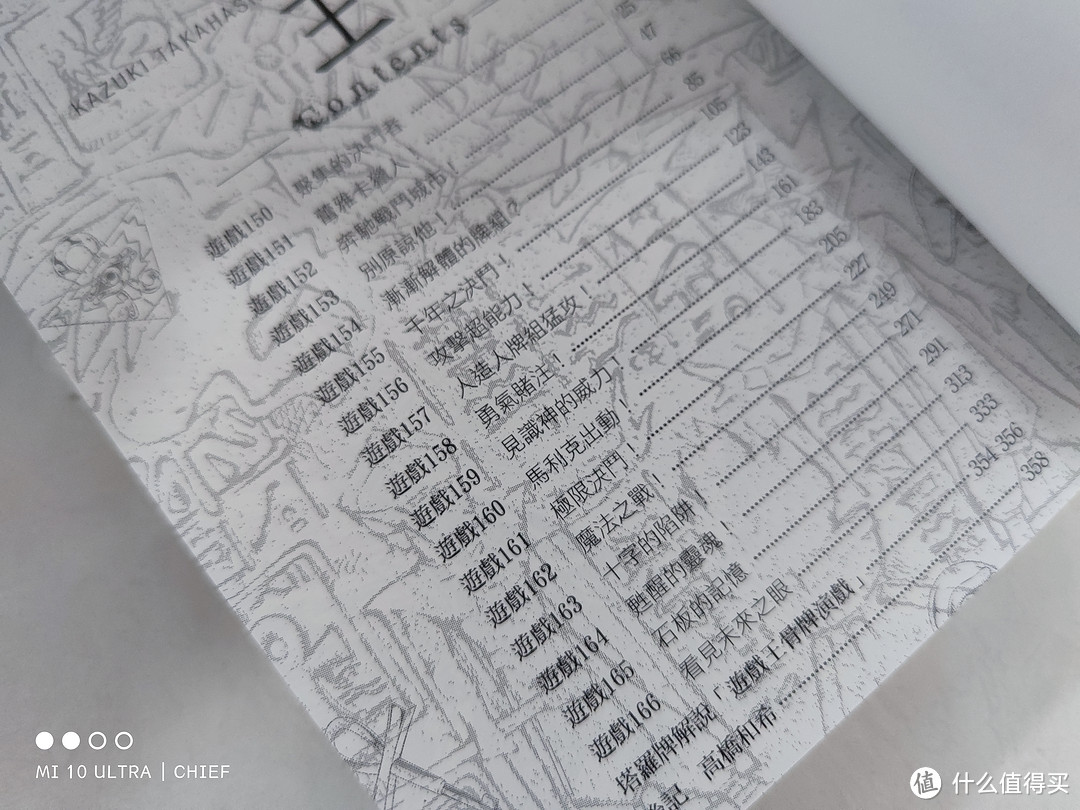 KAZUKI TAKAHAS
王
Contents
遊戲150 聚集的決鬥者
遊戲151 蕾雅卡獵人 25
遊戲152 奔馳戰鬥城市! 47
遊戲153 別原諒他! 66
遊戲154 漸漸解體的牌組? 85
遊戲155 千年之決鬥! 105
遊戲156 攻擊超能力! 123
遊戲157 人造人牌組猛攻! 143
遊戲158 勇氣賭注! 161
遊戲159 見識神的威力 183
遊戲160 馬利克出動! 205
遊戲161 極限決鬥! 227
遊戲162 魔法之戰! 249
遊戲163 十字的陷阱! 271
遊戲164 甦醒的靈魂! 291
遊戲165 石板的記憶 313
遊戲166 看見未來之眼 333
塔羅牌解說「遊戲王骨牌演戲」 354 356
後記 高橋和希 358
MI 10 ULTRA | CHIEF
值 什么值得买